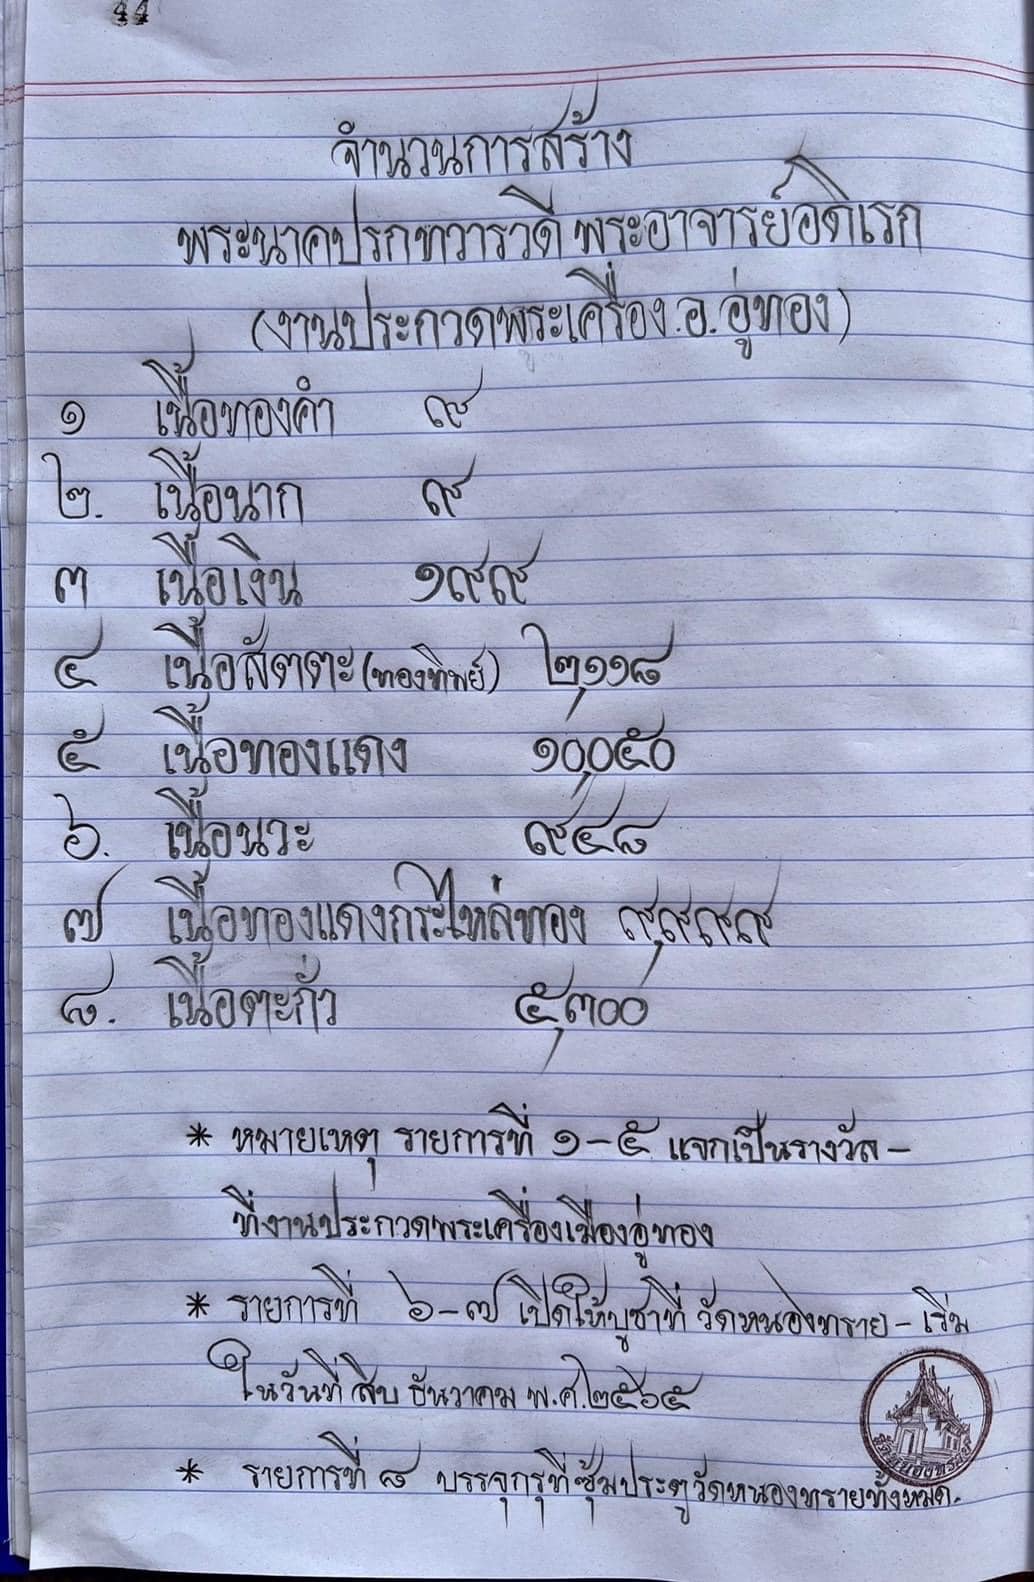 44
จำนวนการสร้าง
พระนาคปรกทวาราวดี พระอาจารย์อดิเรก
(งานประกวดพระเครื่อง.อ.อู่ทอง)
๑ เนื้อทองคำ ๙
๒. เนื้อนาก ๙
๓ เนื้อเงิน ๑๙๙
๔ เนื้อสัตตะ(ทองทิพย์) ๒,๑๑๘
๕ เนื้อทองแดง ๑๐,๐๕๐
๖. เนื้อนวะ ๙๔๘
๗ เนื้อทองแดงกระไหล่ทอง ๙,๙๙๙
๘. เนื้อตะกั่ว ๕,๓๐๐
* หมายเหตุ รายการที่ ๑-๕ แจกเป็นรางวัล-
ที่งานประกวดพระเครื่องเมืองอู่ทอง
* รายการที่ ๖-๗ เปิดให้บูชาที่ วัดหนองทราย - เริ่ม
ในวันที่ สิบ ธันวาคม พ.ศ.๒๕๖๕
* รายการที่ ๘ บรรจุกรุที่ซุ้มประตูวัดหนองทรายทั้งหมด.
วัดหนองทราย